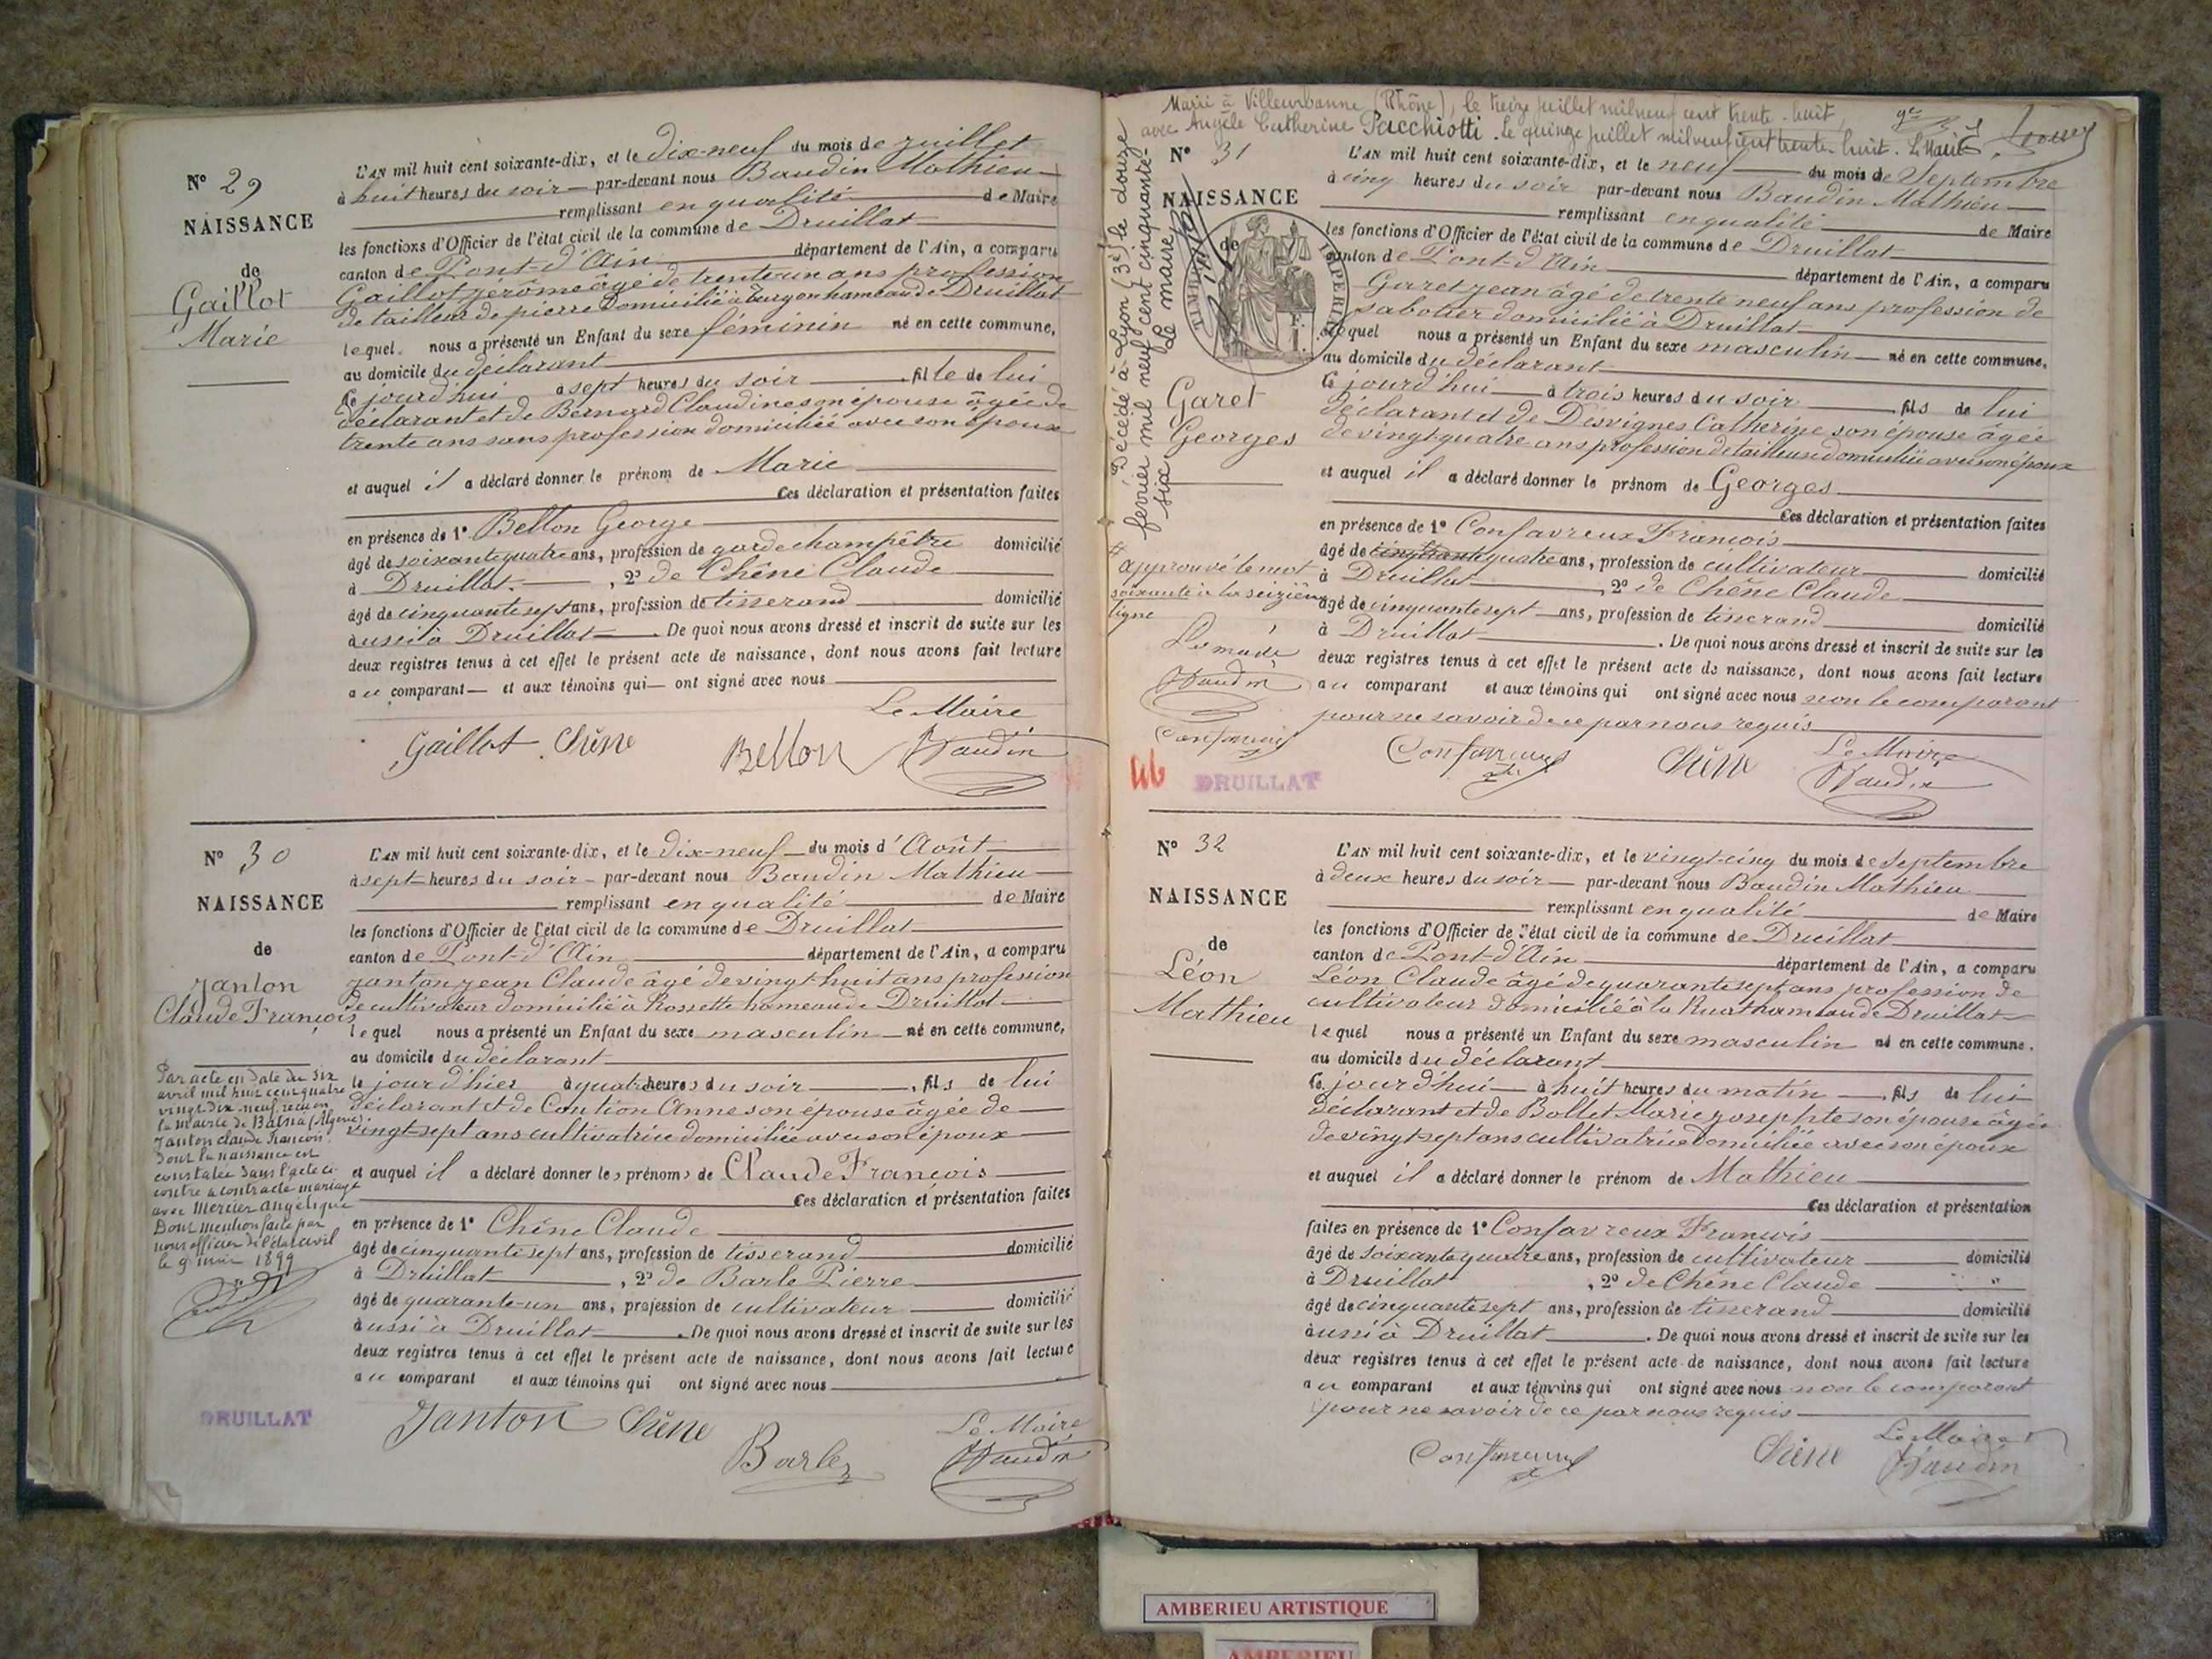 N° 29
NAISSANCE
de
Gaillot
Marie
L'AN mil huit cent soixante-dix, et le dix-neuf du mois de juillet
à huit heures du soir par-devant nous Baudin Mathieu
remplissant en qualité de Maire
les fonctions d'Officier de l'état civil de la commune de Druillat
canton de Pont-d'Ain département de l'Ain, a comparu
Gaillot jérôme âgé de trente un ans profession
de tailleur de pierre domicilié à Turgon hameau de Druillat
lequel nous a présenté un Enfant du sexe féminin né en cette commune,
au domicile du déclarant
Ce jourd'hui à sept heures du soir fille de lui
déclarant et de Bernard Claudine son épouse âgée de
trente ans sans profession domiciliée avec son époux
et auquel il a déclaré donner le prénom de Marie
Ces déclaration et présentation faites
en présence de 1° Bellon George
âgé de soixante quatre ans, profession de garde champêtre domicilié
à Druillat, 2° de Chêne Claude
âgé de cinquante sept ans, profession de tisserand domicilié
aussi à Druillat. De quoi nous avons dressé et inscrit de suite sur les
deux registres tenus à cet effet le présent acte de naissance, dont nous avons fait lecture
au comparant et aux témoins qui ont signé avec nous
Le Maire
Gaillot Chêne Bellon Baudin
N° 30
NAISSANCE
de
Janton
Claude François
L'AN mil huit cent soixante-dix, et le dix-neuf du mois d'Août
à sept heures du soir par-devant nous Baudin Mathieu
remplissant en qualité de Maire
les fonctions d'Officier de l'état civil de la commune de Druillat
canton de Pont-d'Ain département de l'Ain, a comparu
janton jean Claude âgé de vingt-huit ans profession
de cultivateur domicilié à Rossette hameau de Druillat
lequel nous a présenté un Enfant du sexe masculin né en cette commune,
au domicile du déclarant
le jour d'hier à quatre heures du soir, fils de lui
déclarant et de Coution Anne son épouse âgée de
vingt-sept ans cultivatrice domiciliée avec son époux
et auquel il a déclaré donner les prénoms de Claude François
Ces déclaration et présentation faites
en présence de 1° Chêne Claude
âgé de cinquante sept ans, profession de tisserand domicilié
à Druillat, 2° de Barle Pierre
âgé de quarante-un ans, profession de cultivateur domicilié
aussi à Druillat. De quoi nous avons dressé et inscrit de suite sur les
deux registres tenus à cet effet le présent acte de naissance, dont nous avons fait lecture
au comparant et aux témoins qui ont signé avec nous
Par acte en date du six
avril mil huit cent quatre
vingt-dix-neuf reçu en
la mairie de Batna (Algérie)
Janton Claude François
dont la naissance est
constatée dans l'acte ci-
contre a contracté mariage
avec Mercier Angélique
Dont mention faite par
nous officier de l'état civil
le 9 mai 1899
DRUILLAT
Janton Chêne Barle
Le Maire
Baudin
Marié à Villeurbanne (Rhône), le treize juillet mil neuf cent trente-huit,
avec Angèle Catherine Pacchiotti. Le quinze juillet mil neuf cent trente-huit. Le Maire
Décédé à Lyon (3e) le douze
février mil neuf cent cinquante-
six. Le maire,
N° 31
NAISSANCE
de
TIMBRE IMPERIAL
Garet
Georges
L'AN mil huit cent soixante-dix, et le neuf du mois de Septembre
à cinq heures du soir par-devant nous Baudin Mathieu
remplissant en qualité de Maire
les fonctions d'Officier de l'état civil de la commune de Druillat
canton de Pont-d'Ain département de l'Ain, a comparu
Garet jean âgé de trente neuf ans profession de
sabotier domicilié à Druillat
lequel nous a présenté un Enfant du sexe masculin né en cette commune,
au domicile du déclarant
Ce jourd'hui à trois heures du soir fils de lui
déclarant et de Desvignes Catherine son épouse âgée
de vingt quatre ans profession de tailleuse domiciliée avec son époux
et auquel il a déclaré donner le prénom de Georges
Ces déclaration et présentation faites
en présence de 1° Confavreux François
âgé de cinquante quatre ans, profession de cultivateur domicilié
à Druillat, 2° de Chêne Claude
âgé de cinquante sept ans, profession de tisserand domicilié
à Druillat. De quoi nous avons dressé et inscrit de suite sur les
deux registres tenus à cet effet le présent acte de naissance, dont nous avons fait lecture
au comparant et aux témoins qui ont signé avec nous non le comparant
pour ne savoir de ce par nous requis
approuvé le mot
soixante à la seizième
ligne
Baudin
Confavreux
Confavreux Chêne
Le Maire
Baudin
46 DRUILLAT
N° 32
NAISSANCE
de
Léon
Mathieu
L'AN mil huit cent soixante-dix, et le vingt-cinq du mois de Septembre
à deux heures du soir par-devant nous Baudin Mathieu
remplissant en qualité de Maire
les fonctions d'Officier de l'état civil de la commune de Druillat
canton de Pont-d'Ain département de l'Ain, a comparu
Léon Claude âgé de quarante sept ans profession de
cultivateur domicilié à la Ruat hameau de Druillat
lequel nous a présenté un Enfant du sexe masculin né en cette commune,
au domicile du déclarant
Ce jourd'hui à huit heures du matin, fils de lui
déclarant et de Bollet Marie josephte son épouse âgée
de vingt-sept ans cultivatrice domiciliée avec son époux
et auquel il a déclaré donner le prénom de Mathieu
Ces déclaration et présentation
faites en présence de 1° Confavreux François
âgé de soixante quatre ans, profession de cultivateur domicilié
à Druillat, 2° de Chêne Claude
âgé de cinquante sept ans, profession de tisserand domicilié
aussi à Druillat. De quoi nous avons dressé et inscrit de suite sur les
deux registres tenus à cet effet le présent acte de naissance, dont nous avons fait lecture
au comparant et aux témoins qui ont signé avec nous non le comparant
pour ne savoir de ce par nous requis
Le Maire
Confavreux Chêne Baudin
AMBERIEU ARTISTIQUE
AMBERIEU